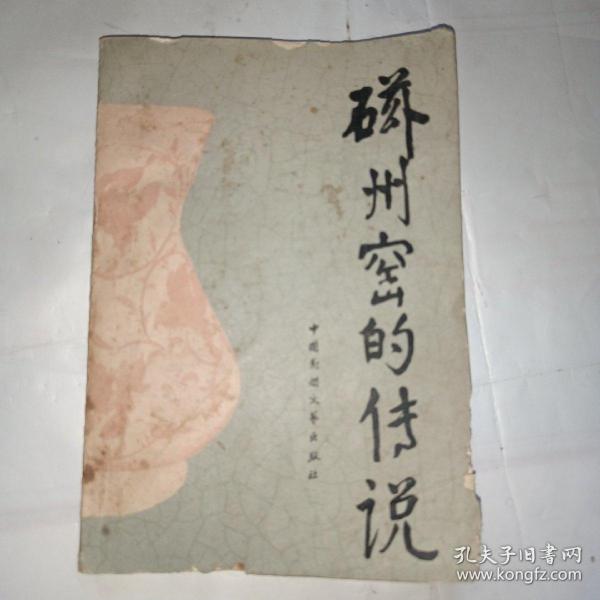 磁州窑的传说
中国民间文艺出版社
孔夫子旧书网
www.kongfz.com